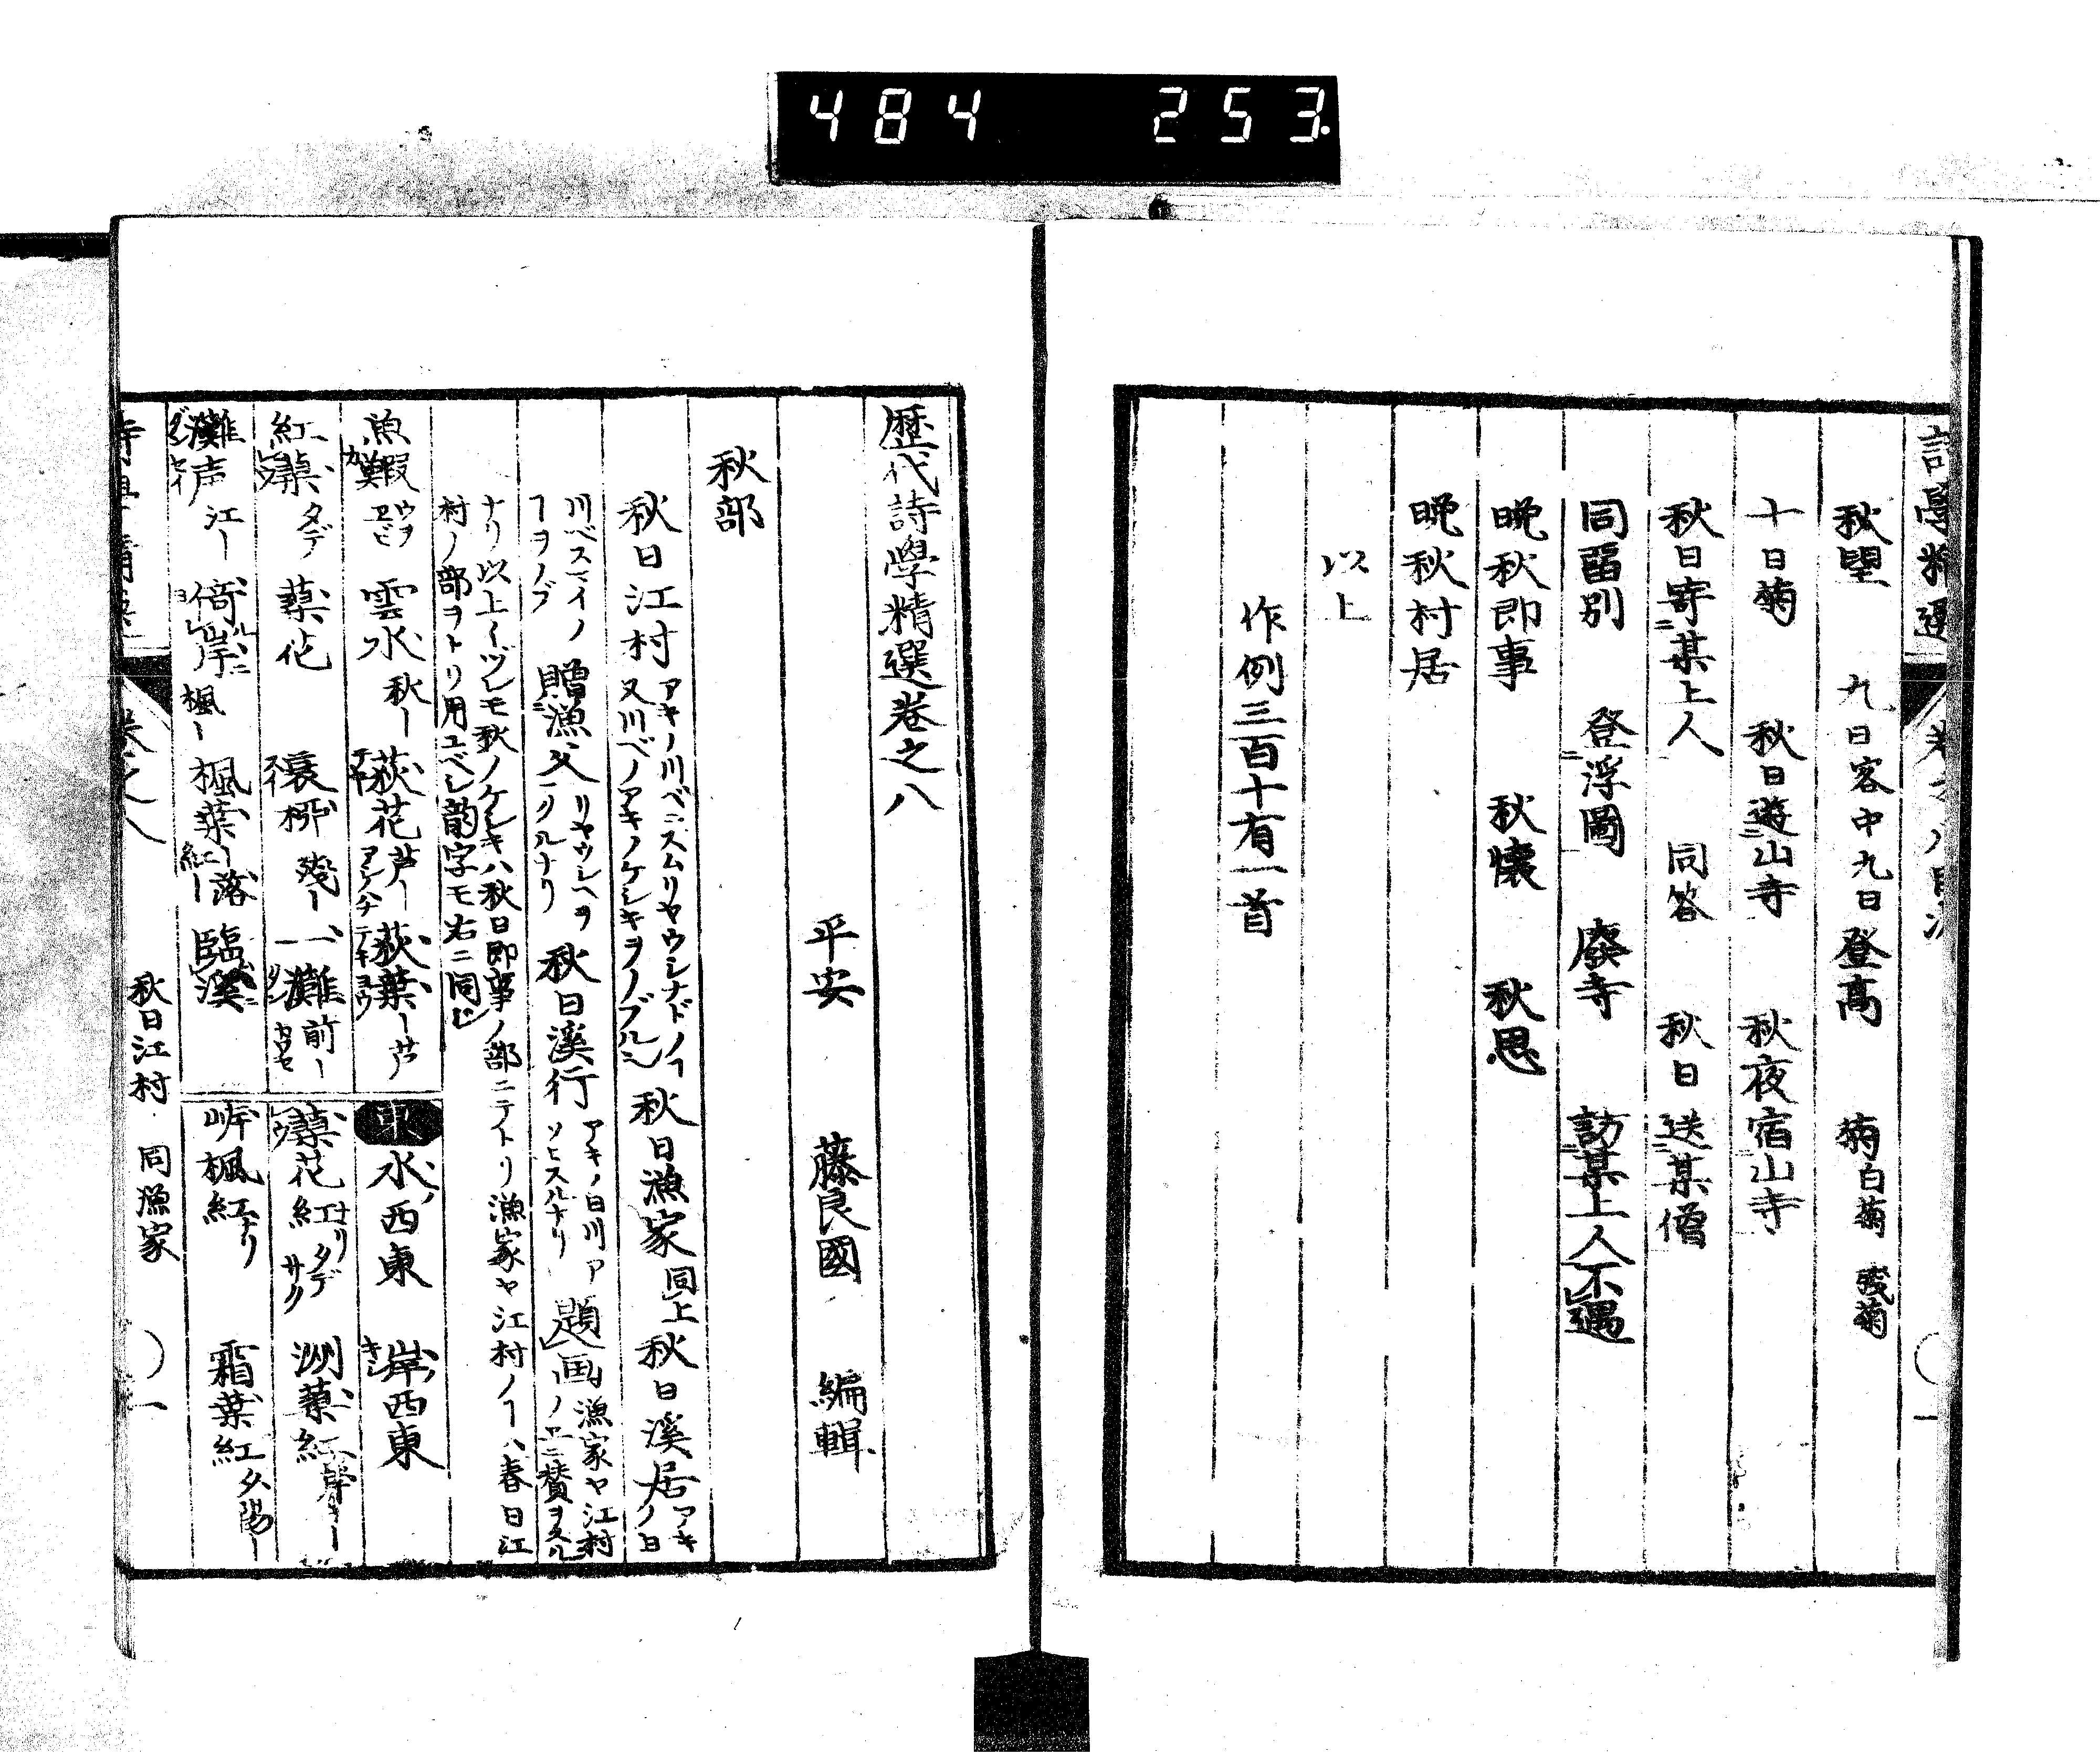 484 253.
秋望 九日客中九日登高 菊白菊 残菊
十日菊 秋日遊山寺 秋夜宿山寺
秋日寄某上人 同答 秋日送某僧
同留別 登浮圖 廢寺 訪某上人不遇
晩秋即事 秋懐 秋思
晩秋村居
以上
作例三百十有一首
歴代詩學精選巻之八
平安 藤良國 編輯
秋部
秋日江村 アキノ川ベニスムリヤウシナドノヿ
又川ベノアキノケシキヲノブルニ 秋日漁家同上 秋日溪居 アキノ日
川ベスマイノヿヲノブ 贈漁父 リヤウシヘヲクルナリ 秋日溪行 アキノ日川ア
ソヒスルナリ 題画 漁家ヤ江村ノヱニ賛ヲスル
ナリ以上イヅレモ秋ノケシキハ秋日即事ノ部ニテトリ漁家ヤ江村ノヿハ春日江
村ノ部ヲトリ用ユベシ韵字モ右ニ同じ
魚鰕 ウヲヱビ 雲水 秋ー 荻花 芦ー 荻葉ー芦 東 水西東 岸西東
紅蓼 タデ 蓼花 衰柳 残ー 一灘 前ー 蓼花紅ナリ タデサク 洲蓼紅 岸ー
灘声 江ー 倚岸 楓ー 楓葉ー落 紅ー 臨溪 岸楓紅ナリ 霜葉紅 夕陽ー
秋日江村 同漁家 一